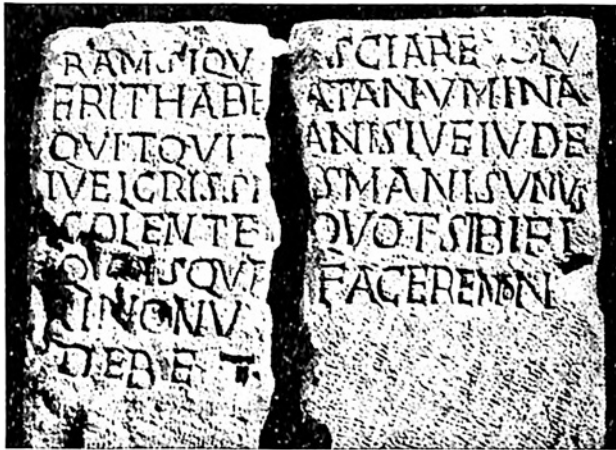 RAM SIQV
ERITHABE
QVITQVIT
IVELCRISSI
COLENTE
RINONV
DEBET
SCIARE
ATANVMINA
ANISIVEIVDE
SMANISVNVS
QVOTSIBIFI
FACERENON